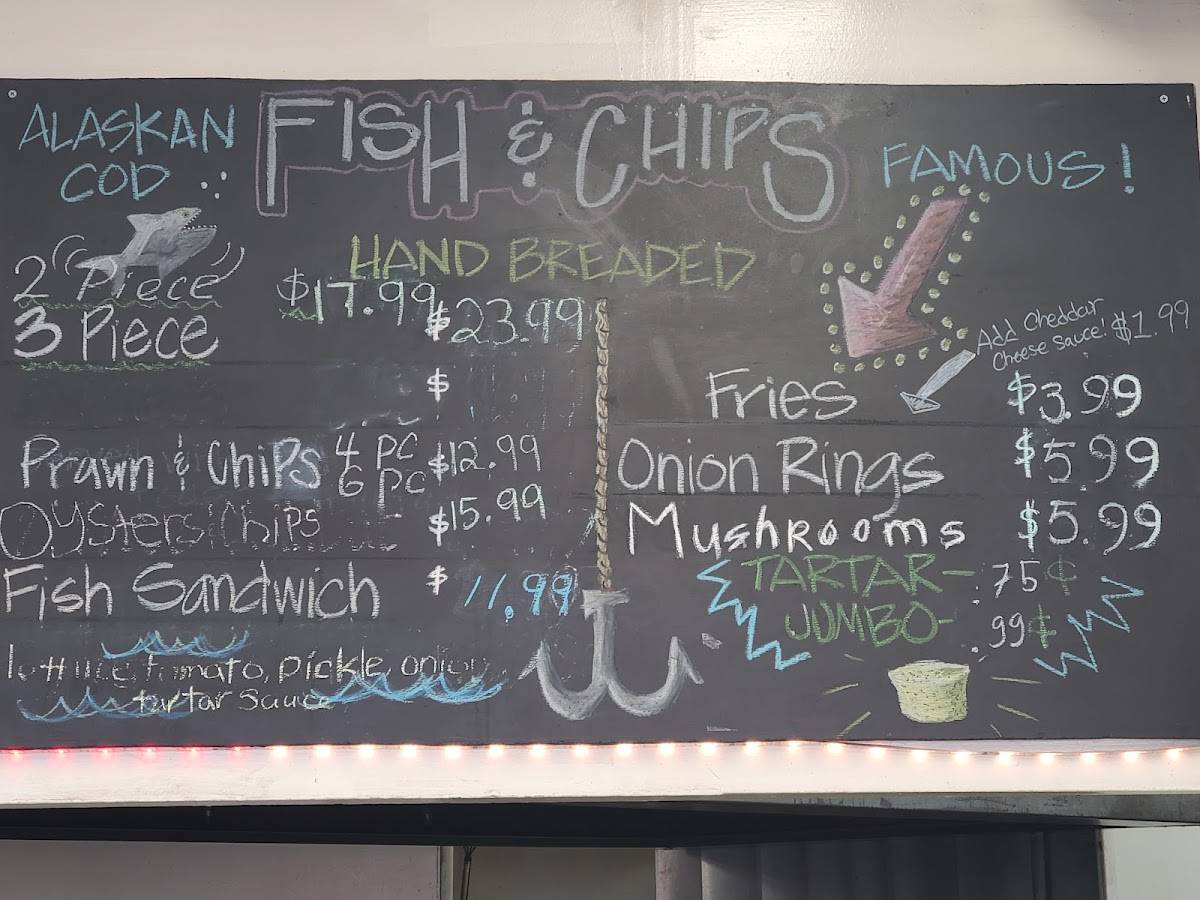 ALASKAN
COD
FISH & CHIPS
FAMOUS!
HAND BREADED
2 Piece $17.99
3 Piece $23.99
$
Prawn & Chips 4 PC $12.99
6 PC $15.99
Oysters Chips
Fish Sandwich $ 11.99
lettuce, tomato, pickle, onion
tartar sauce
Add Cheddar
Cheese Sauce! $1.99
Fries $3.99
Onion Rings $5.99
Mushrooms $5.99
TARTAR- .75¢
JUMBO- .99¢